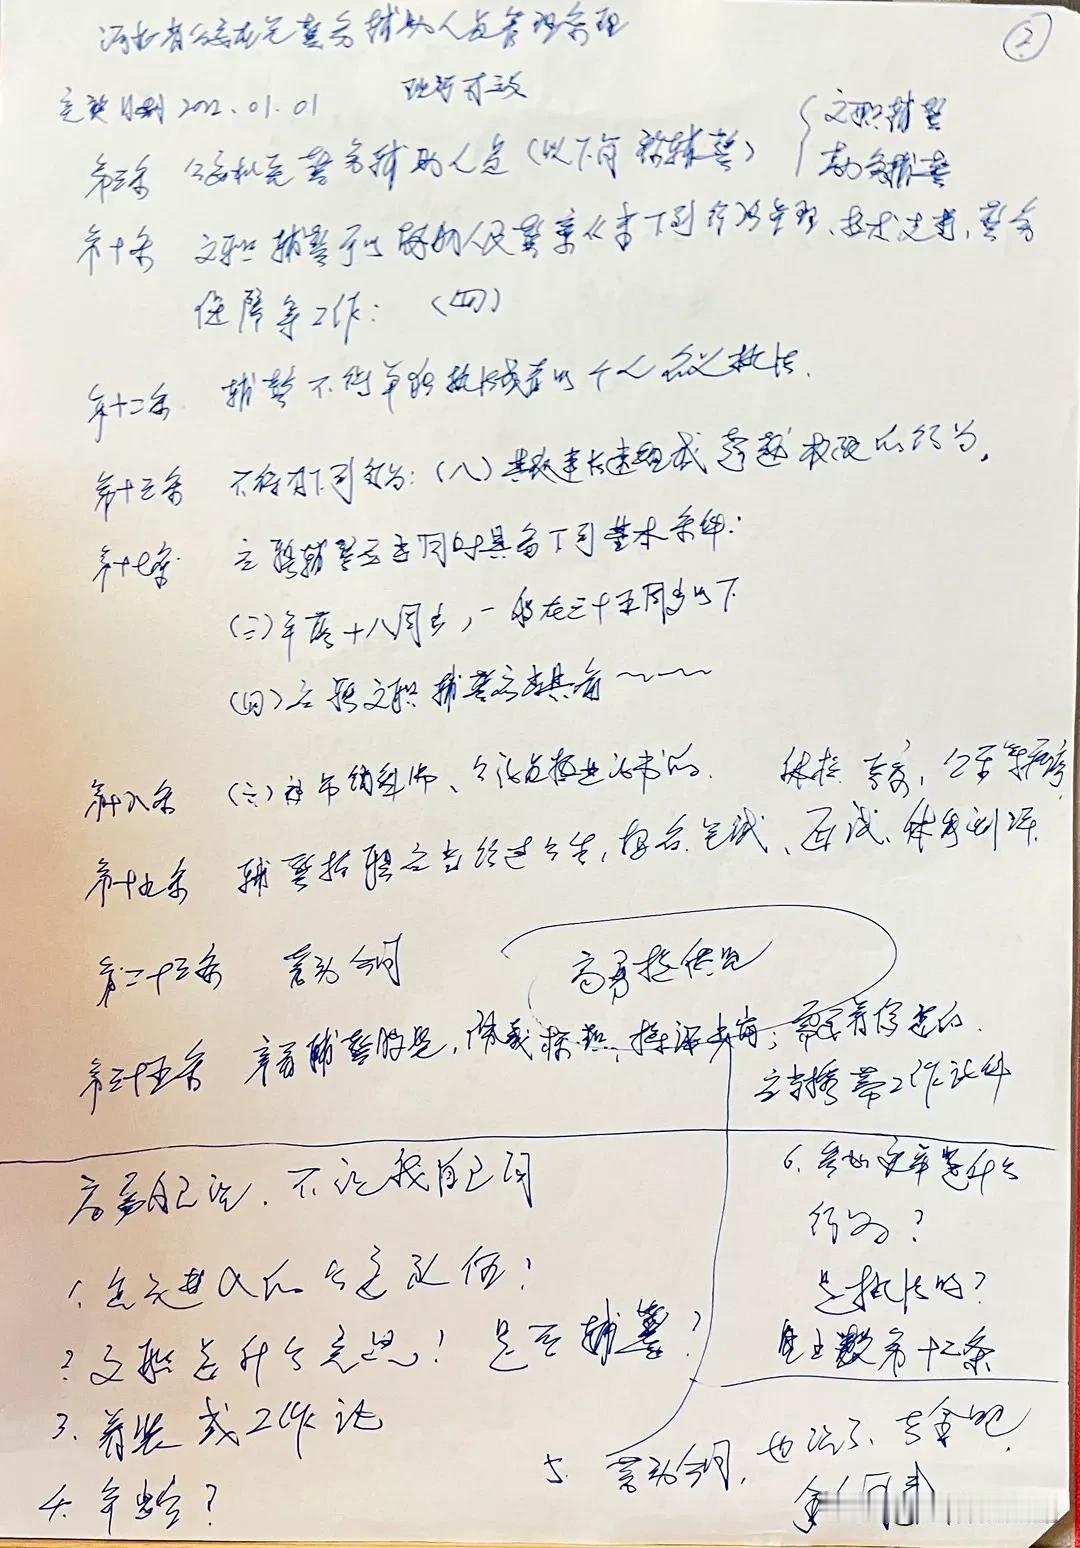 河北省公安机关警务辅助人员管理条例
②
现行有效
实施日期 2022.01.01
第三条 公安机关警务辅助人员(以下简称辅警)
文职辅警
勤务辅警
第十条 文职辅警可以协助人民警察从事下列行政管理、技术支持、警务
保障等工作: (四)
第十二条 辅警不得单独执法或者以个人名义执法.
第十三条 不得有下列行为:(八)其他违法违规或超越权限的行为。
第十七条 应聘辅警应当同时具备下列基本条件:
(二)年满十八周岁,一般在三十五周岁以下
(四)应聘文职辅警应当具有
第十八条 (六) 证书的. 体检、考察,公示等程序
第十九条 辅警招聘应当经过公告,报名、笔试、面试、体能测评.
第二十三条 劳动合同
高勇提供见
第三十五条 穿着辅警服装,佩戴标识,持证上岗;
应当携带工作证件
高勇自己说.不说我自己问
1.怎么进入的公安队伍?
2.文职是什么意思! 是否辅警?
3.着装或工作证
4.年龄?
5.劳动合同,也说了、
6.参加 是什么
行为?
是执法吗?
第十二条